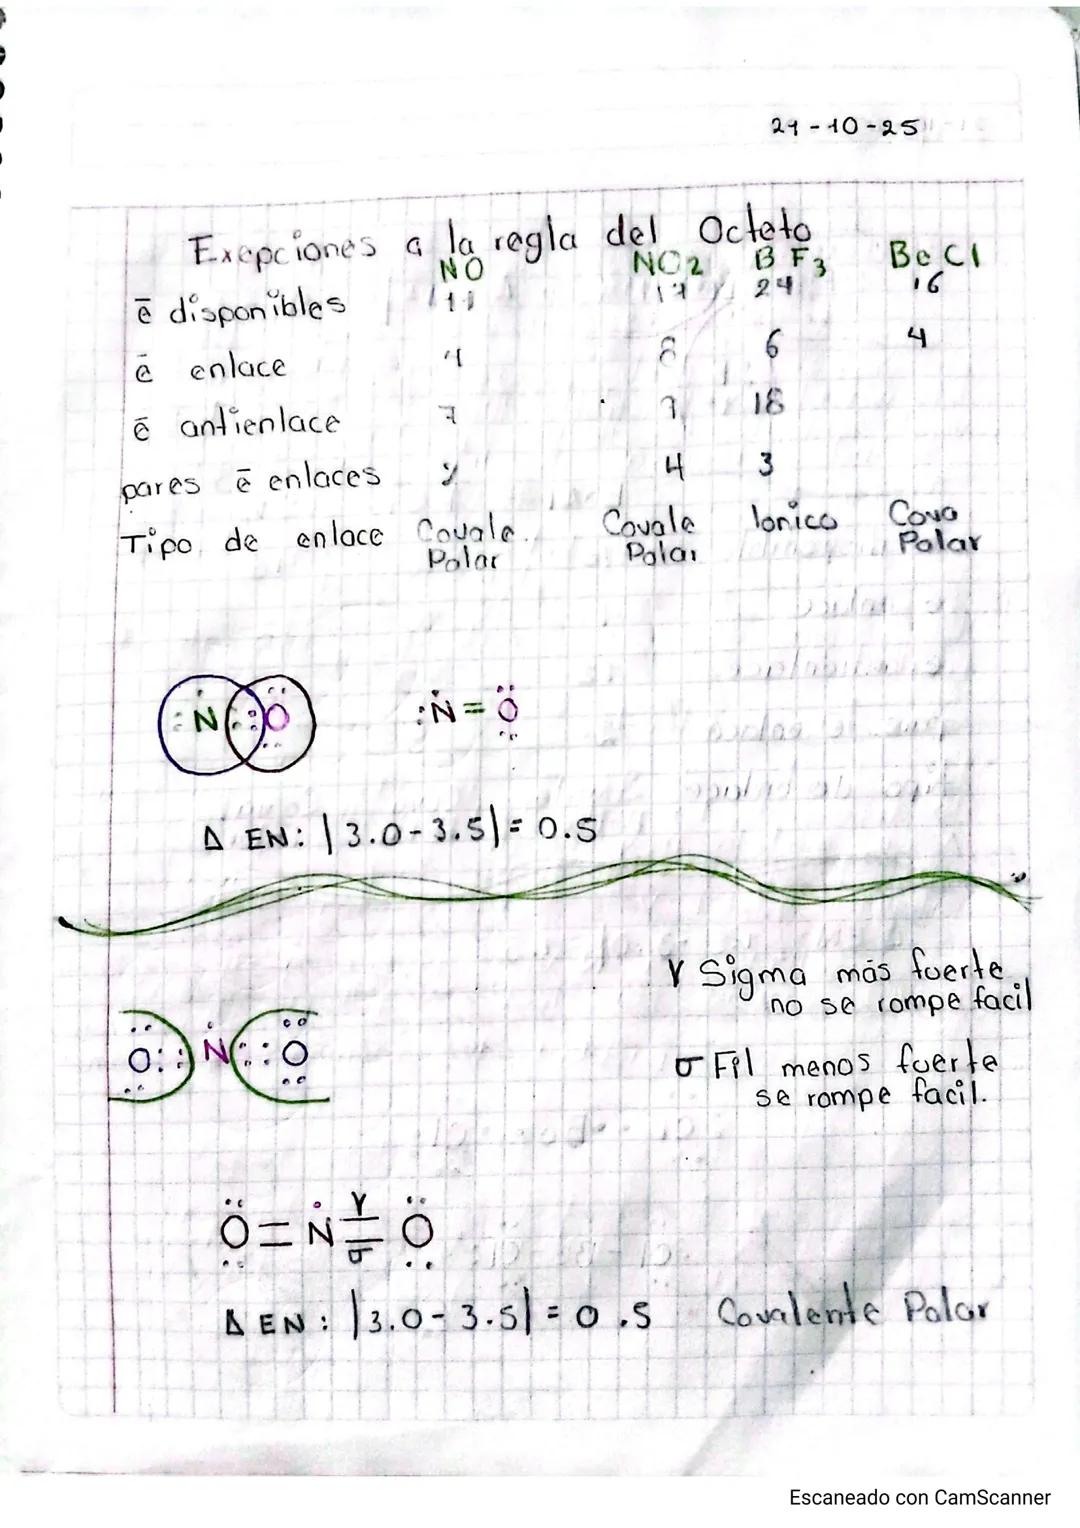 21-10-25
Exepciones a la regla del Octeto
NO NO2 BF3 BeCl
ē disponibles 11 17 24 16
ē enlace 4 8 6 4
ē antienlace 7 9 18
pares ē enlaces 2 4 3
Tipo de enlace Covale. Covale Ionico Cova
Polar Polar Polar
:N::O :N=O
Δ EN: |3.0-3.5|= 0.5
γ Sigma más fuerte
no se rompe facil
O::N::O
σ Fil menos fuerte
se rompe facil.
γ
O=N=O
σ
Δ EN: |3.0-3.5|= 0.5 Covalente Polar
Escaneado con CamScanner